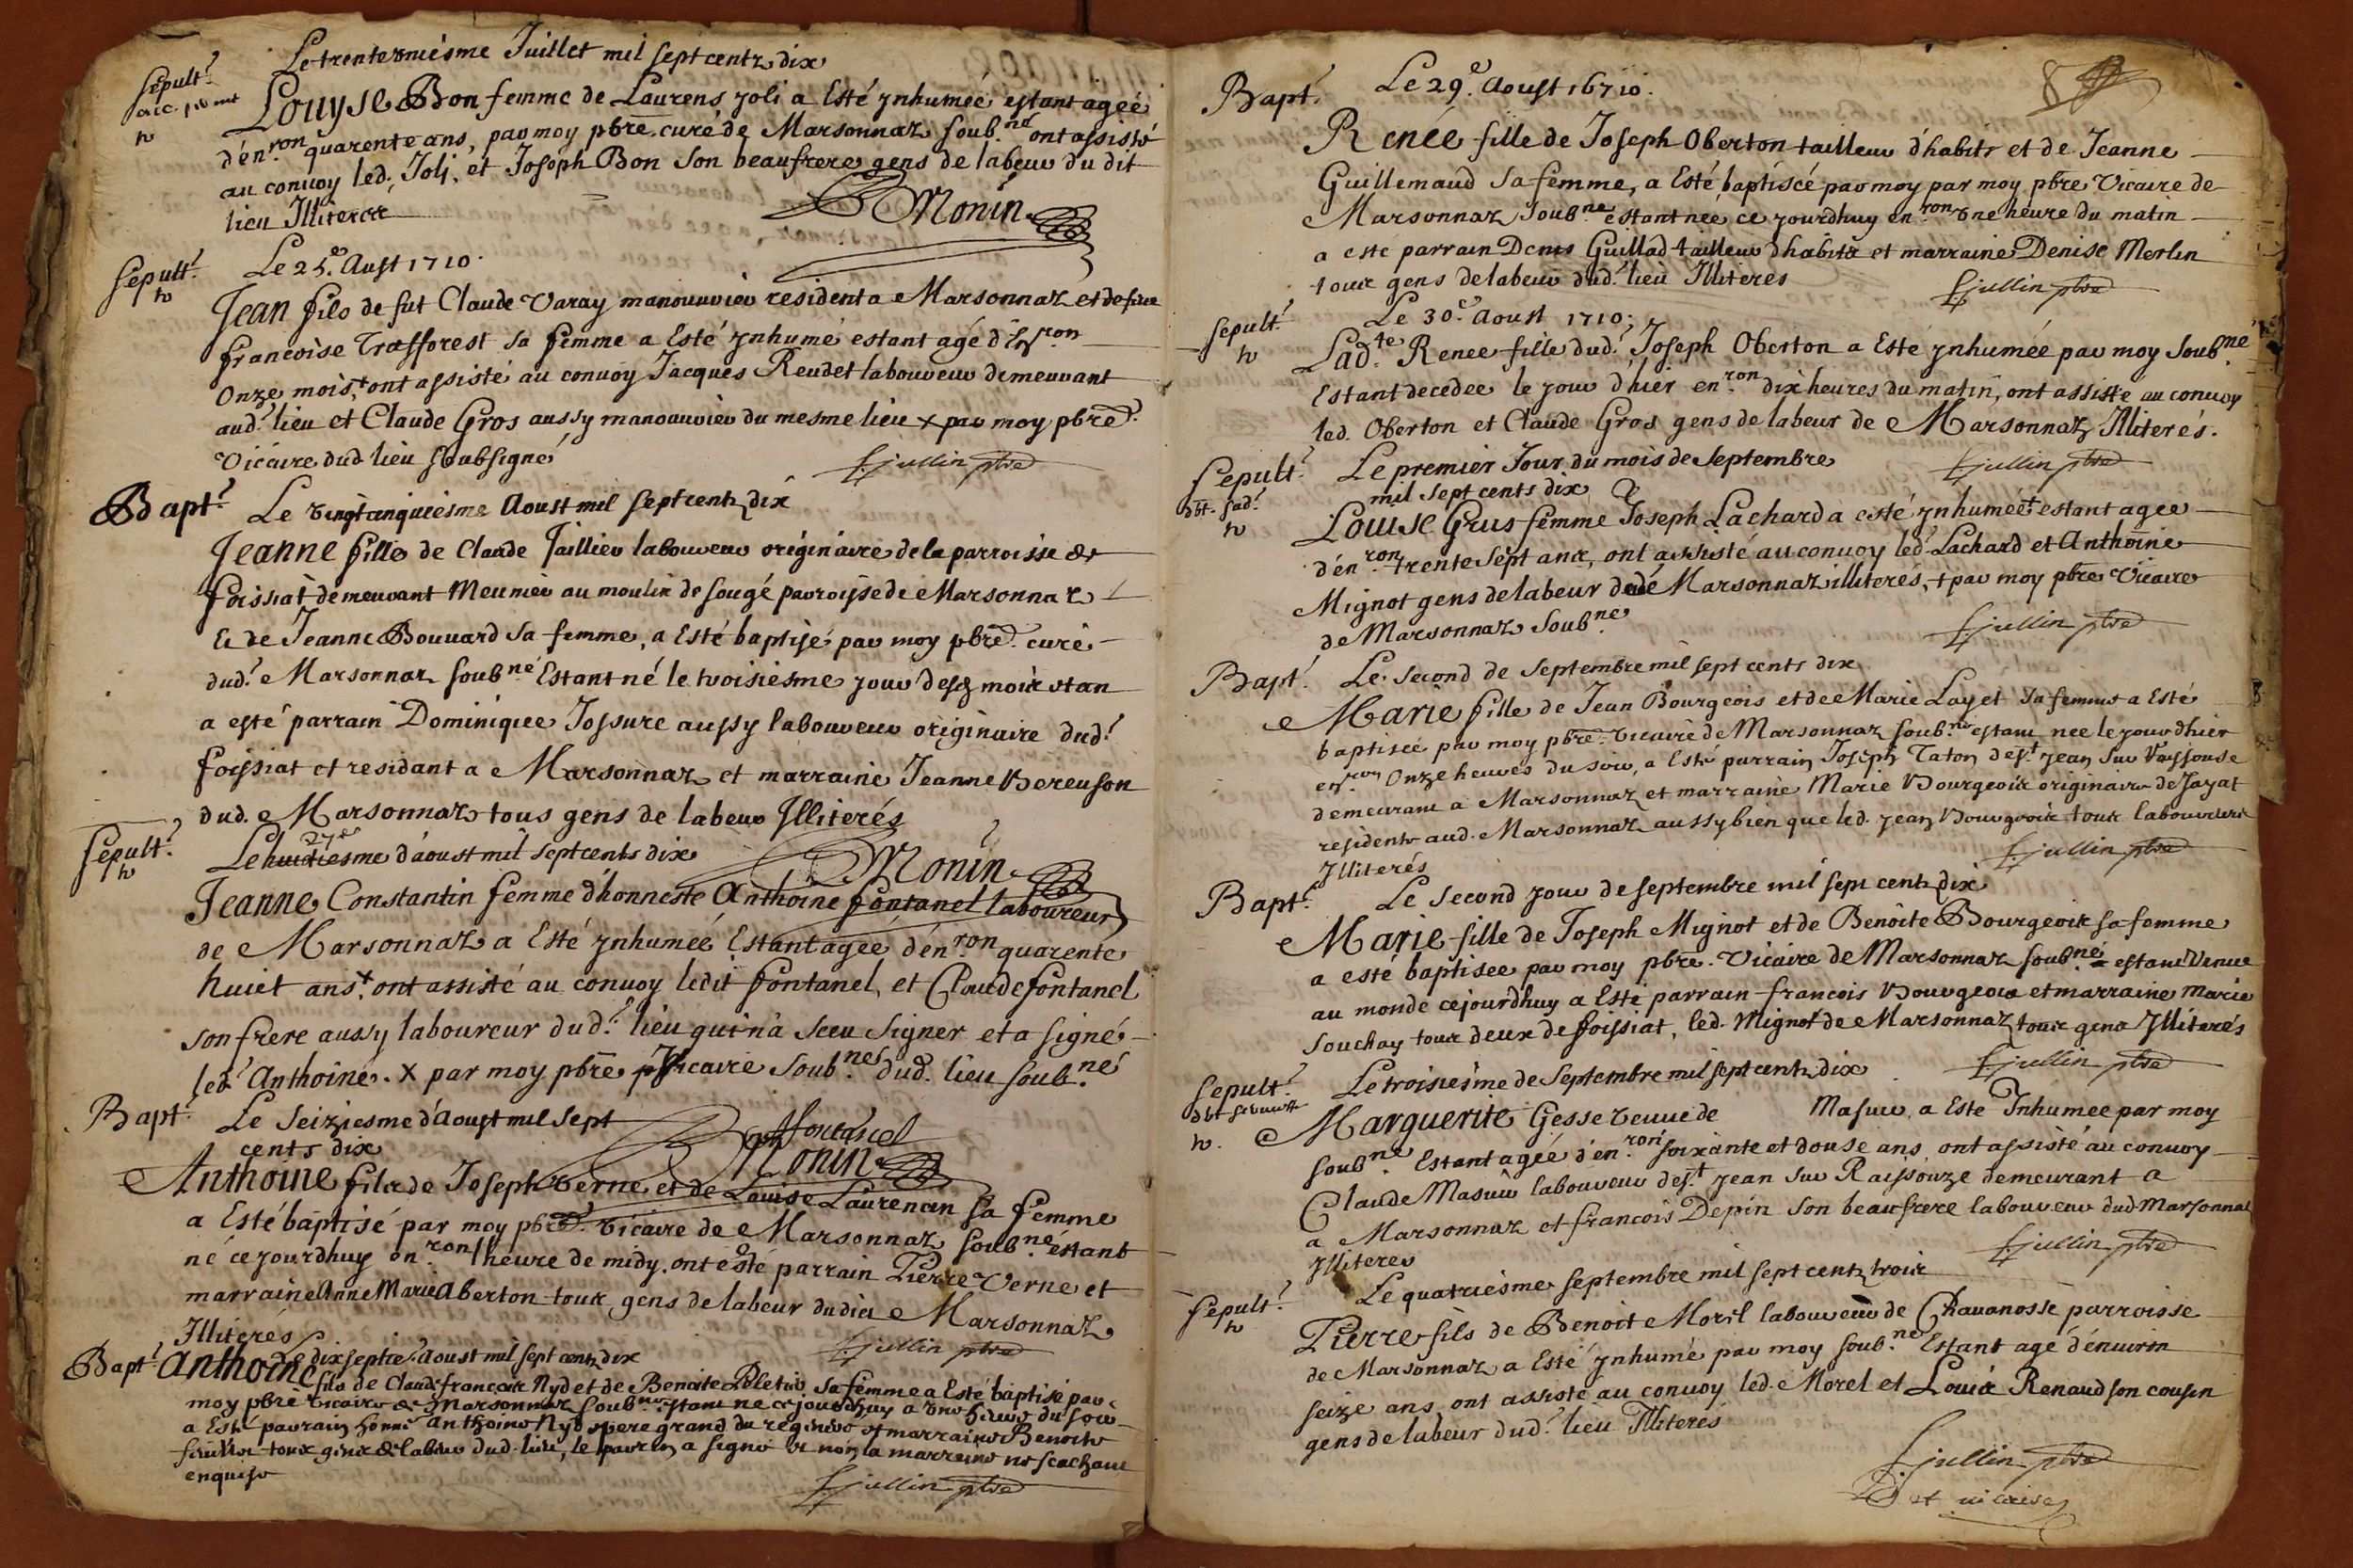 Sepult.
Le trente uniésme Juillet mil sept centz dix
Louyse Bon femme de Laurens Joli a Esté ynhumée estant agée
d'en.ron quarente ans, par moy pbre. curé de Marsonnaz soub.né ont assisté
au convoy led. Joli, et Joseph Bon son beaufrere gens de labeur du dit
lieu Illiterez
Monin
Sepult.
Le 25.e Aust 1710.
Jean fils de fut Claude Varay manouvrier resident a Marsonnaz et de feue
francoise Trafforest sa femme a Esté ynhumé estant agé d'En.ron
Onze mois,+ ont assisté au convoy Jacques Reudet laboureur demeurant
aud. lieu et Claude Gros aussy manouvrier du mesme lieu x par moy pbre.
Vicaire dud. lieu soubsigné
Cjullin pbre
Bapt.
Le vingtcinquiésme Aoust mil sept centz dix
Jeanne fille de Claude Jaillier laboureur originaire de la parroisse de
foissiat demeurant Meunier au moulin de sougé parroisse de Marsonnaz
Et de Jeanne Bouvard sa femme, a Esté baptisé par moy pbre. curé
dud. Marsonnaz soub.né Estant né le troisiésme jour desd. mois et an
a esté parrain Dominique Jossure aussy laboureur originaire dud.
foissiat et residant a Marsonnaz et marraine Jeanne Bereuson
dud. Marsonnaz tous gens de labeur Illiterés
Monin
Sepult.
27e
Le huictiesme d'aoust mil sept cents dix
Jeanne Constantin femme d'honneste Anthoine fontanel laboureur
de Marsonnaz a Esté ynhumée Estant agée d'en.ron quarente
huict ans+. ont assisté au convoy ledit fontanel, et Claude fontanel
son frere aussy laboureur dud. lieu qui n'a sceu signer et a signé
led. Anthoine. x par moy pbre vicaire soub.nes dud. lieu soub.né
fontanel
Monin
Bapt.
Le seiziesme d'Aoust mil sept
cents dix
Anthoine filz de Joseph Verne et de Louise Laurencin sa femme
a Esté baptisé par moy pbre. vicaire de Marsonnaz soub.né éstant
né cejourdhuy en.ron l'heure de midy. ont esté parrain Pierre Verne et
marraine Anne Marie Aberton tous gens de labeur dudit Marsonnaz
Illiterés
Cjullin pbre
Bapt.
Le dixseptie. Aoust mil sept centz dix
Anthoine fils de Claude francois Nyd et de Benoite Peletir sa femme a Esté baptisé par
moy pbre vicaire de Marsonnaz soub.né estant né cejourdhuy a une heure du soir
a Esté parrain honne. Anthoine Nyd pere grand du regineré et marraine Benoite
tous gens de labeur dud. lieu, le parrain a signé et non la marraine ne scachant
enquise
Cjullin pbre
Bapt.
Le 29.e Aoust 16710.
8
Renée fille de Joseph Oberton tailleur d'habits et de Jeanne
Guillemaud sa femme, a Esté baptiscé par moy par moy pbre Vicaire de
Marsonnaz soub.né estant née ce jourdhuy en.ron une heure du matin
a este parrain Denis Guillad tailleur dhabits et marraine Denise Merlin
tous gens de labeur dud. lieu Illiteres
Cjullin pbre
Sepult.
Le 30.e Aoust 1710;
Lad.te Renee fille dud. Joseph Oberton a Esté ynhumée par moy soub.né
Estant decedee le jour d'hier en.ron dix heures du matin, ont assisté au convoy
led. Oberton et Claude Gros gens de labeur de Marsonnaz Illiterés.
Cjullin pbre
Sepult.
Le premier Jour du mois de Septembre
mil sept cents dix
Louise Grus femme Joseph Lachard a esté ynhumée+ estant agee
d'én.ron trente sept ans, ont assisté au convoy led. Lachard et Anthoine
Mignot gens de labeur de Marsonnaz illiterés, + par moy pbre Vicaire
de Marsonnaz soub.né
Cjullin pbre
Bapt.
Le second de Septembre mil sept cents dix
Marie fille de Jean Bourgeois et de Marie Layet sa femme a Esté
baptiseé par moy pbre. vicaire de Marsonnaz soub.né estant nee le jour dhier
en.ron Onze heures du soir, a Esté parrain Joseph Taton de s.t jean sur Raissouse
demeurant a Marsonnaz et marraine Marie Bourgeois originaire de Jayat
residents aud. Marsonnaz aussy bien que led. jean Bourgeois tous laboureurs
Illiterés
Cjullin pbre
Bapt.
Le second jour de septembre mil sept centz dix
Marie fille de Joseph Mignot et de Benoite Bourgeois sa femme
a esté baptisee par moy pbre. Vicaire de Marsonnaz soub.né estant venue
au monde cejourdhuy a Esté parrain francois Bourgeois et marraine Marie
Souchay tous deux de foissiat, led. Mignot de Marsonnaz tous gens Illiterés
Cjullin pbre
Sepult.
Le troisiésme de Septembre mil sept centz dix
Marguerite Gesse veuve de Masuir a Esté Inhumee par moy
soub.né Estant agée d'én.ron soixante et douse ans, ont assisté au convoy
Claude Masuir laboureur de s.t jean sur Raissouze demeurant a
a Marsonnaz et francois Depin son beaufrere laboureur dud. Marsonnaz
Illiteres
Cjullin pbre
Sepult.
Le quatriésme septembre mil sept centz trois
Pierre fils de Benoit Moril laboureur de Chavanosse parroisse
de Marsonnaz a Esté ynhumé par moy soub.né Estant agé d'environ
seize ans ont assisté au convoy led. Morel et Louis Renaud son cousin
gens de labeur dud. lieu Illiterés
Cjullin pbre
et vicaire